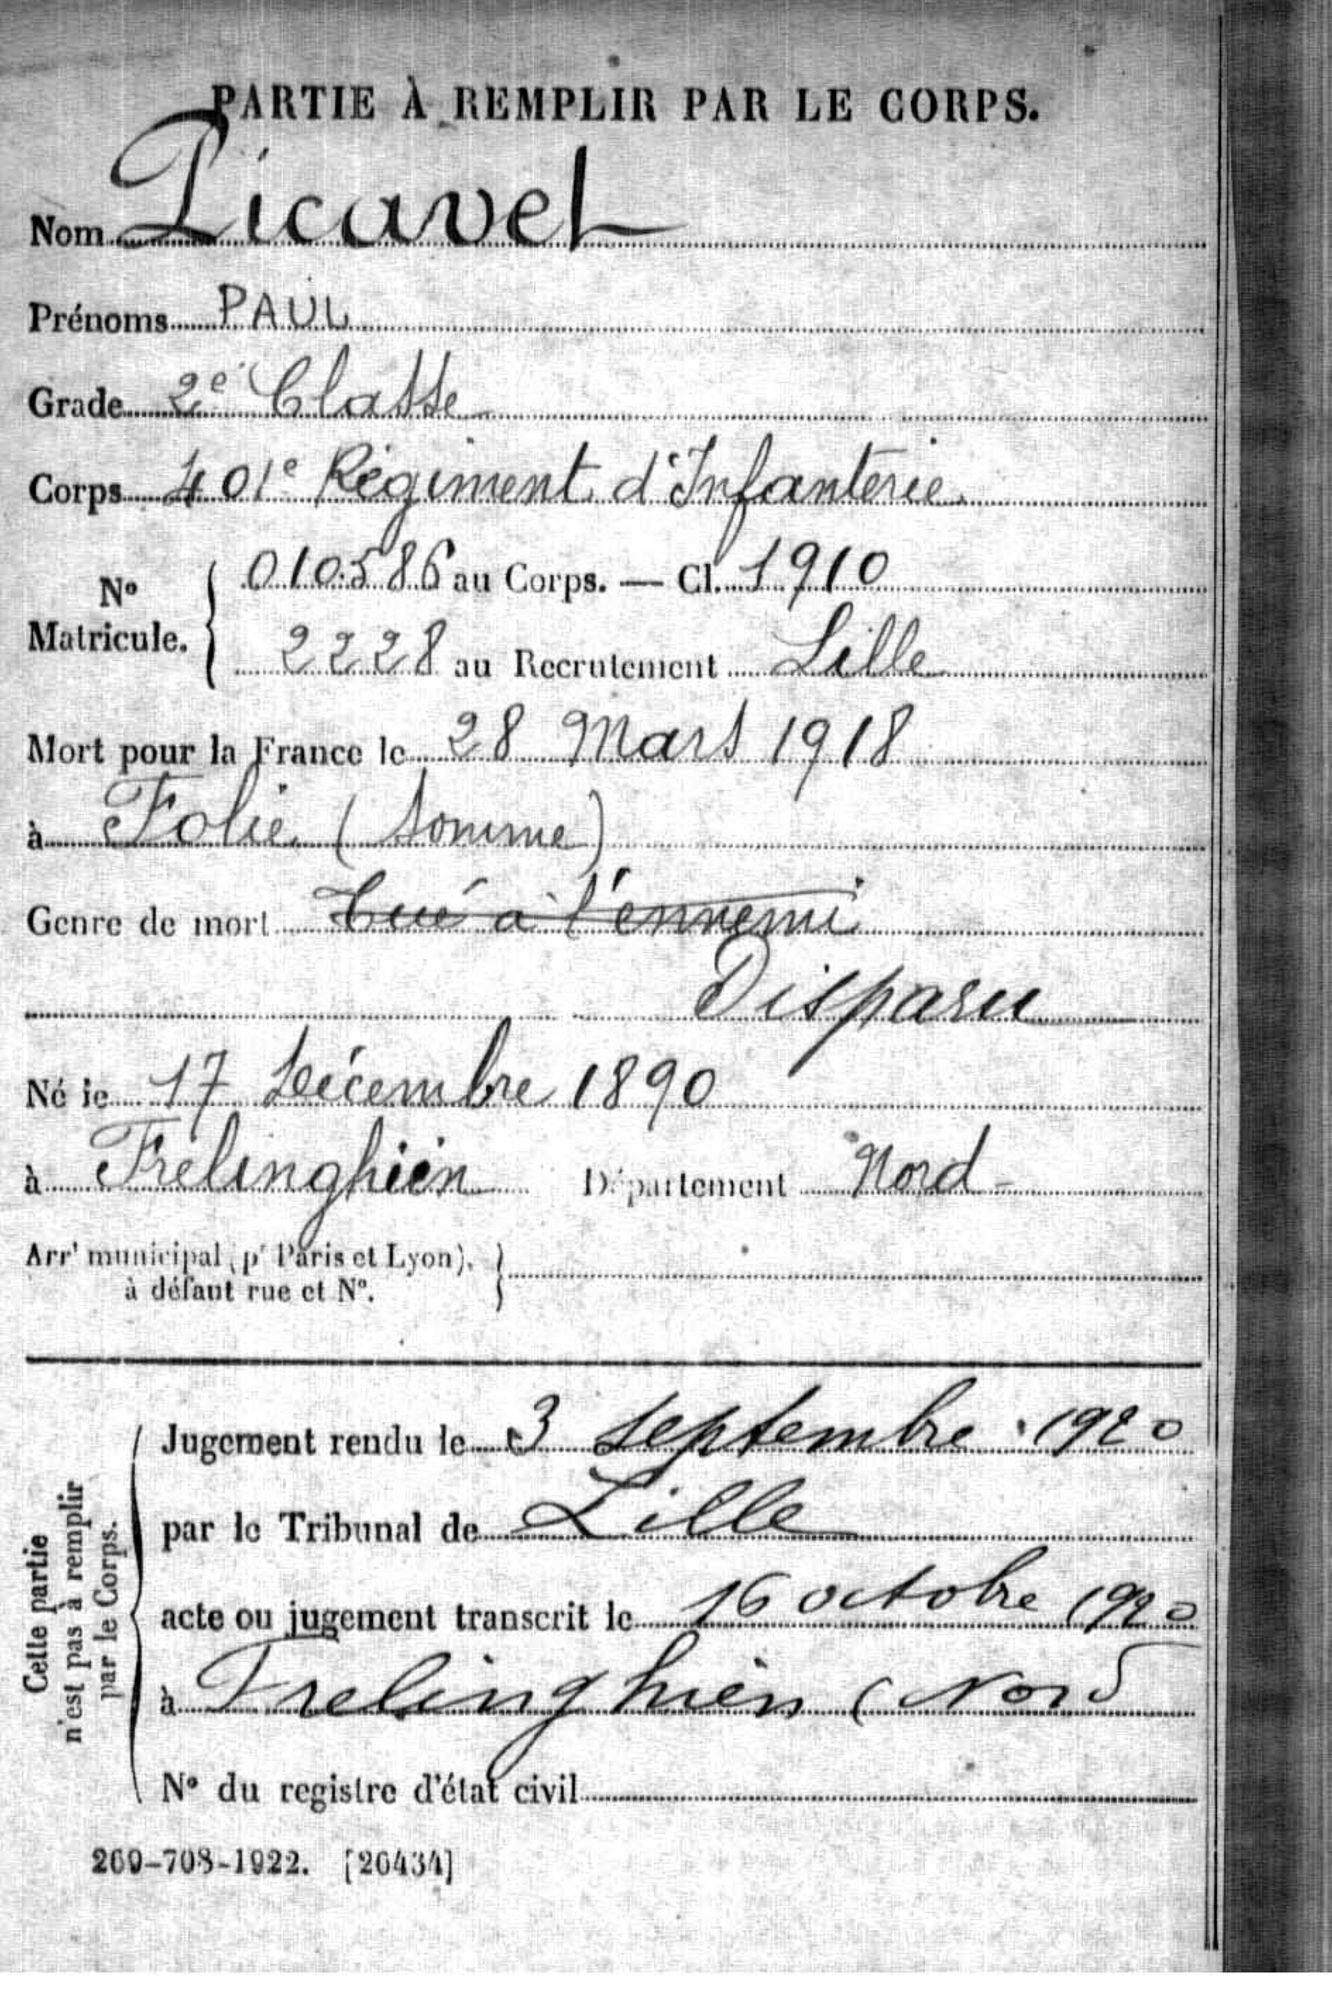 PARTIE À REMPLIR PAR LE CORPS.
Nom Picavet
Prénoms PAUL
Grade 2e Classe
Corps 401e Régiment d'Infanterie
No Matricule. 010586 au Corps. — Cl. 1910
2228 au Recrutement Lille
Mort pour la France le 28 Mars 1918
à Folie (Somme)
Genre de mort Tué à l'ennemi
Disparu
Né le 17 Décembre 1890
à Frelinghien Département Nord
Arrt municipal (pr Paris et Lyon),
à défaut rue et No.
Jugement rendu le 3 septembre 1920
par le Tribunal de Lille
acte ou jugement transcrit le 16 octobre 1920
à Frelinghien (Nord
No du registre d'état civil
Cette partie
n'est pas à remplir
par le Corps.
269-708-1922. [26434]